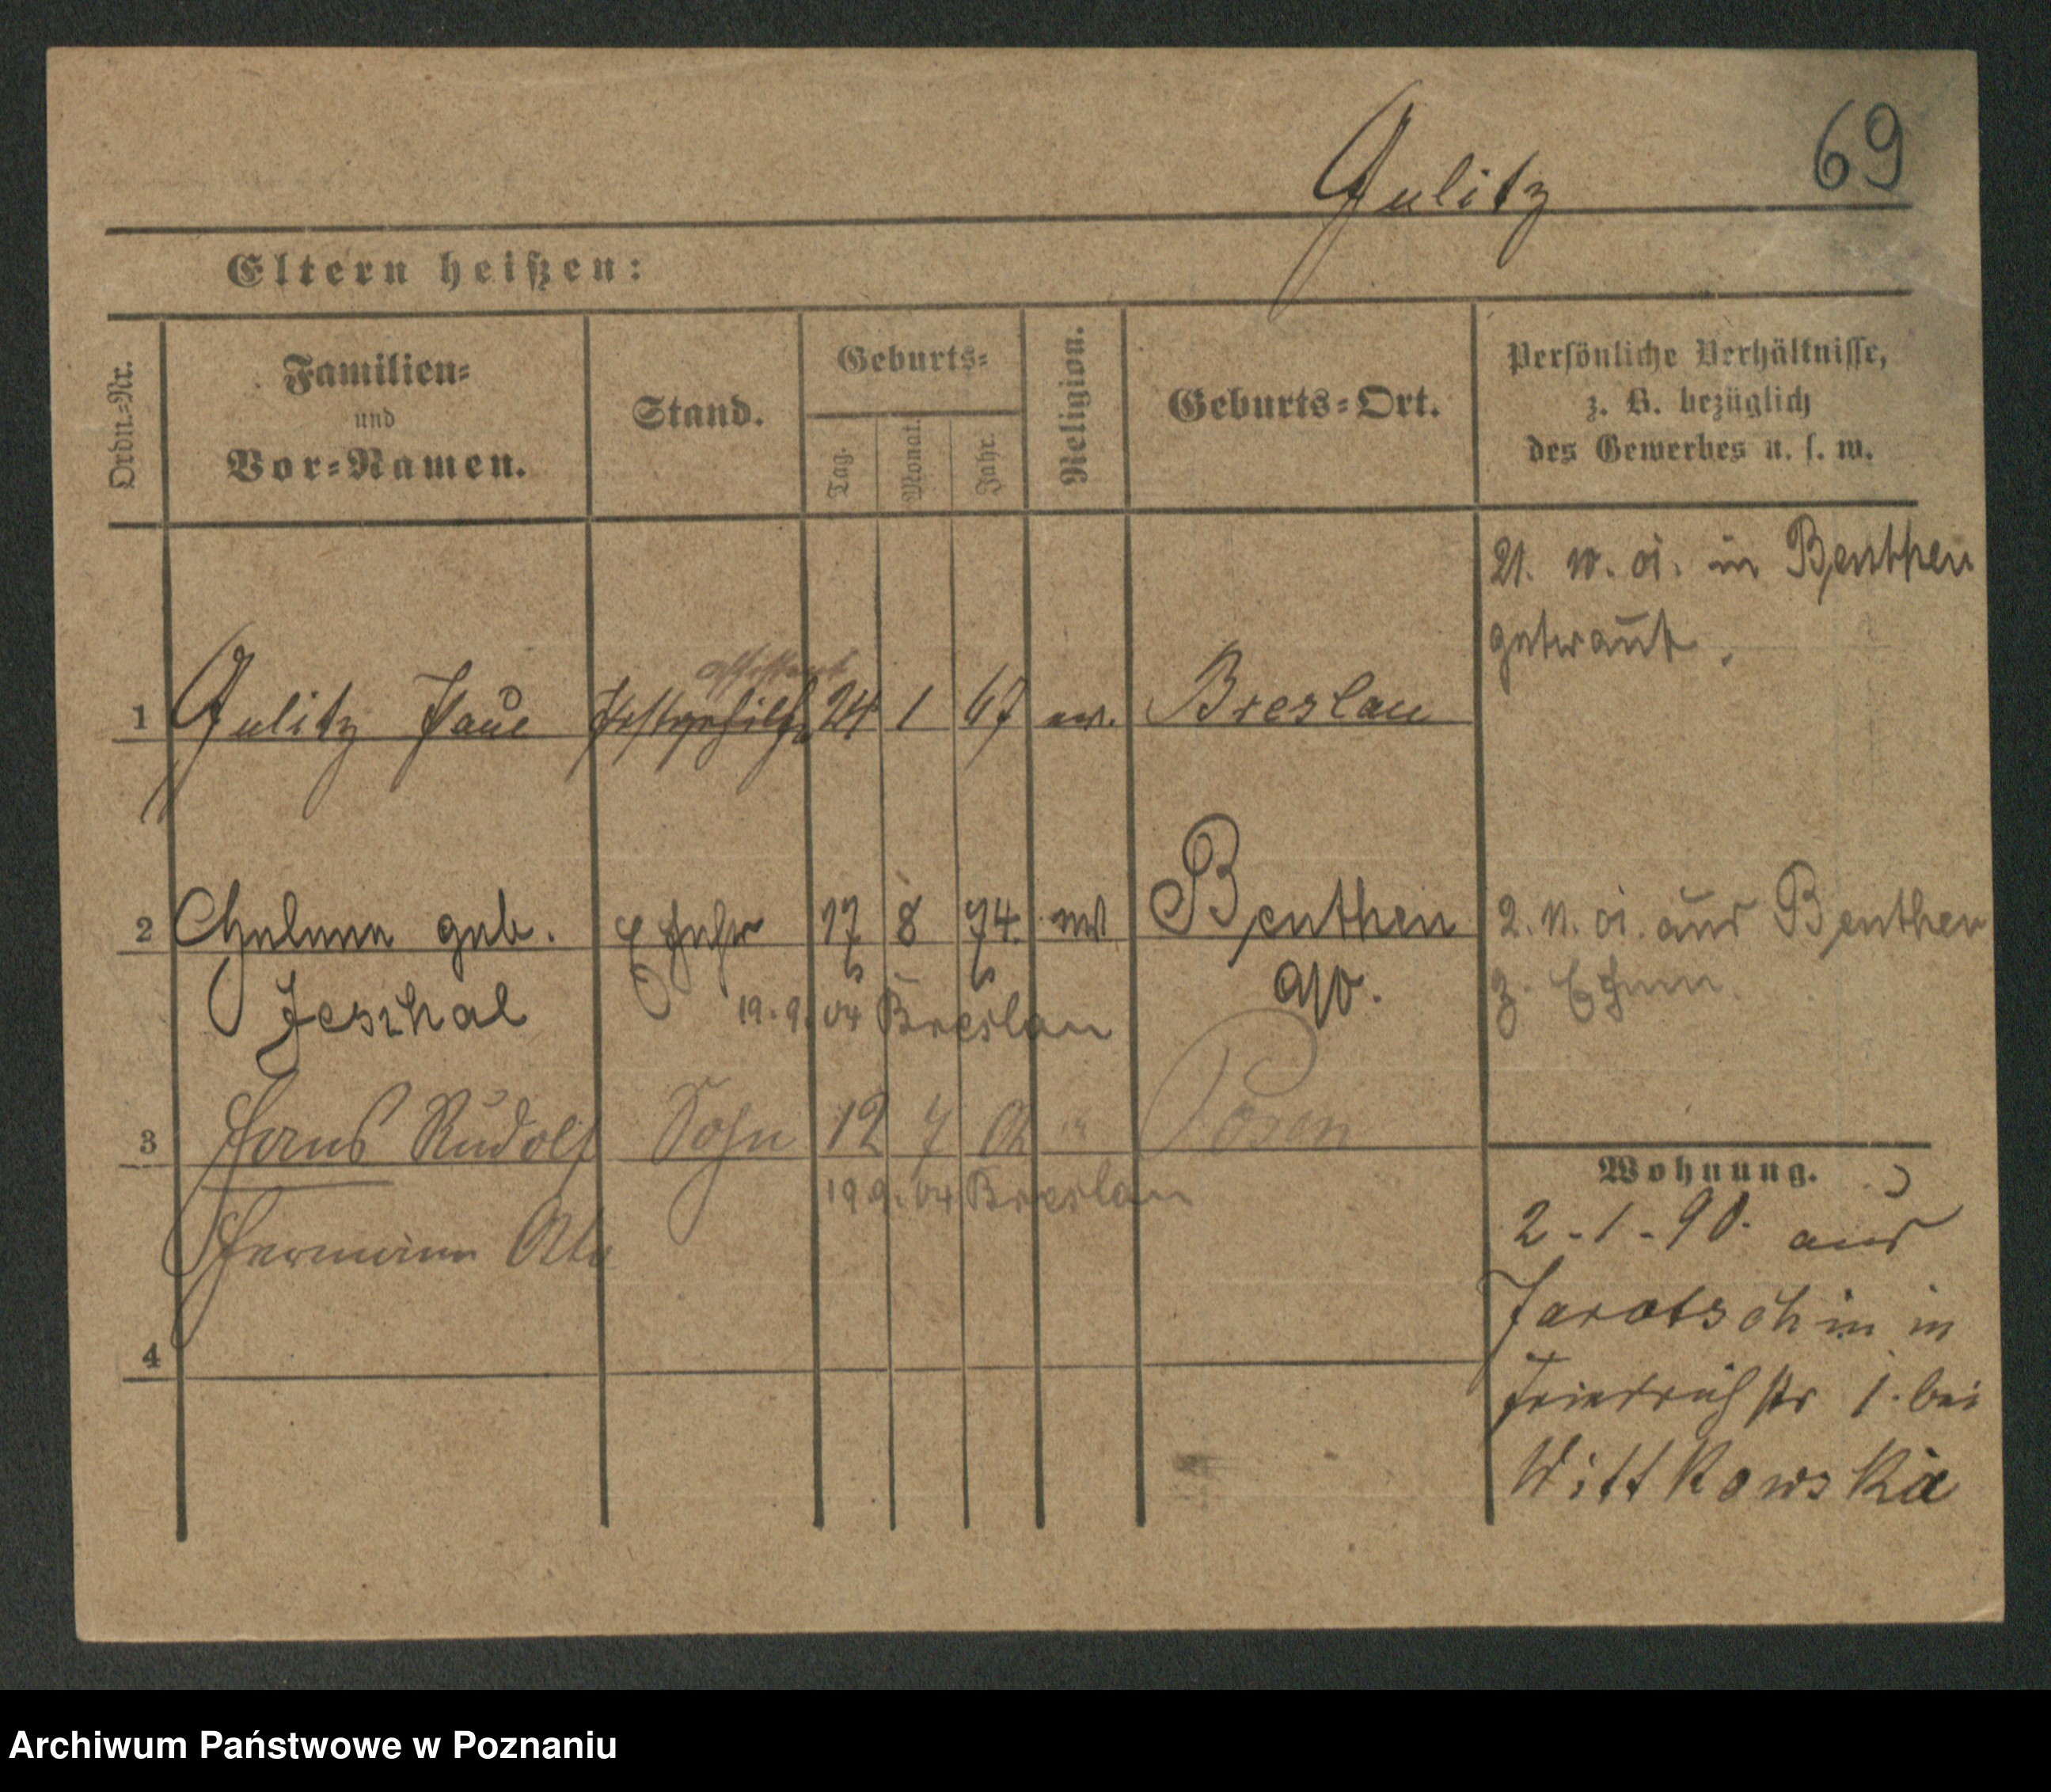 69
Gulitz
Eltern heißen:
Ordn.=Nr.
Familien=
und
Vor=Namen.
Stand.
Geburts=
Tag.
Monat.
Jahr.
Religion.
Geburts=Ort.
Persönliche Verhältnisse,
z. B. bezüglich
des Gewerbes u. s. w.
21. 10. 01. in Beuthen
getraut.
assistent
1 Gulitz Paul Postgehilfe 24 1 67 ev. Breslau
2 geb. Ehefr 17 8 74. Beuthen
O/S.
Jeschal
19.9.04 Breslau
2. 11. 01. aus Beuthen
z. Ehm.
3 Hans Rudolf Sohn 12 7 02 Posen
19 9. 04 Breslau
Hermann
4
Wohnung.
2.1.90. aus
Jarotschin in
Friedrichstr 1. bei
Wittkowska
Archiwum Państwowe w Poznaniu